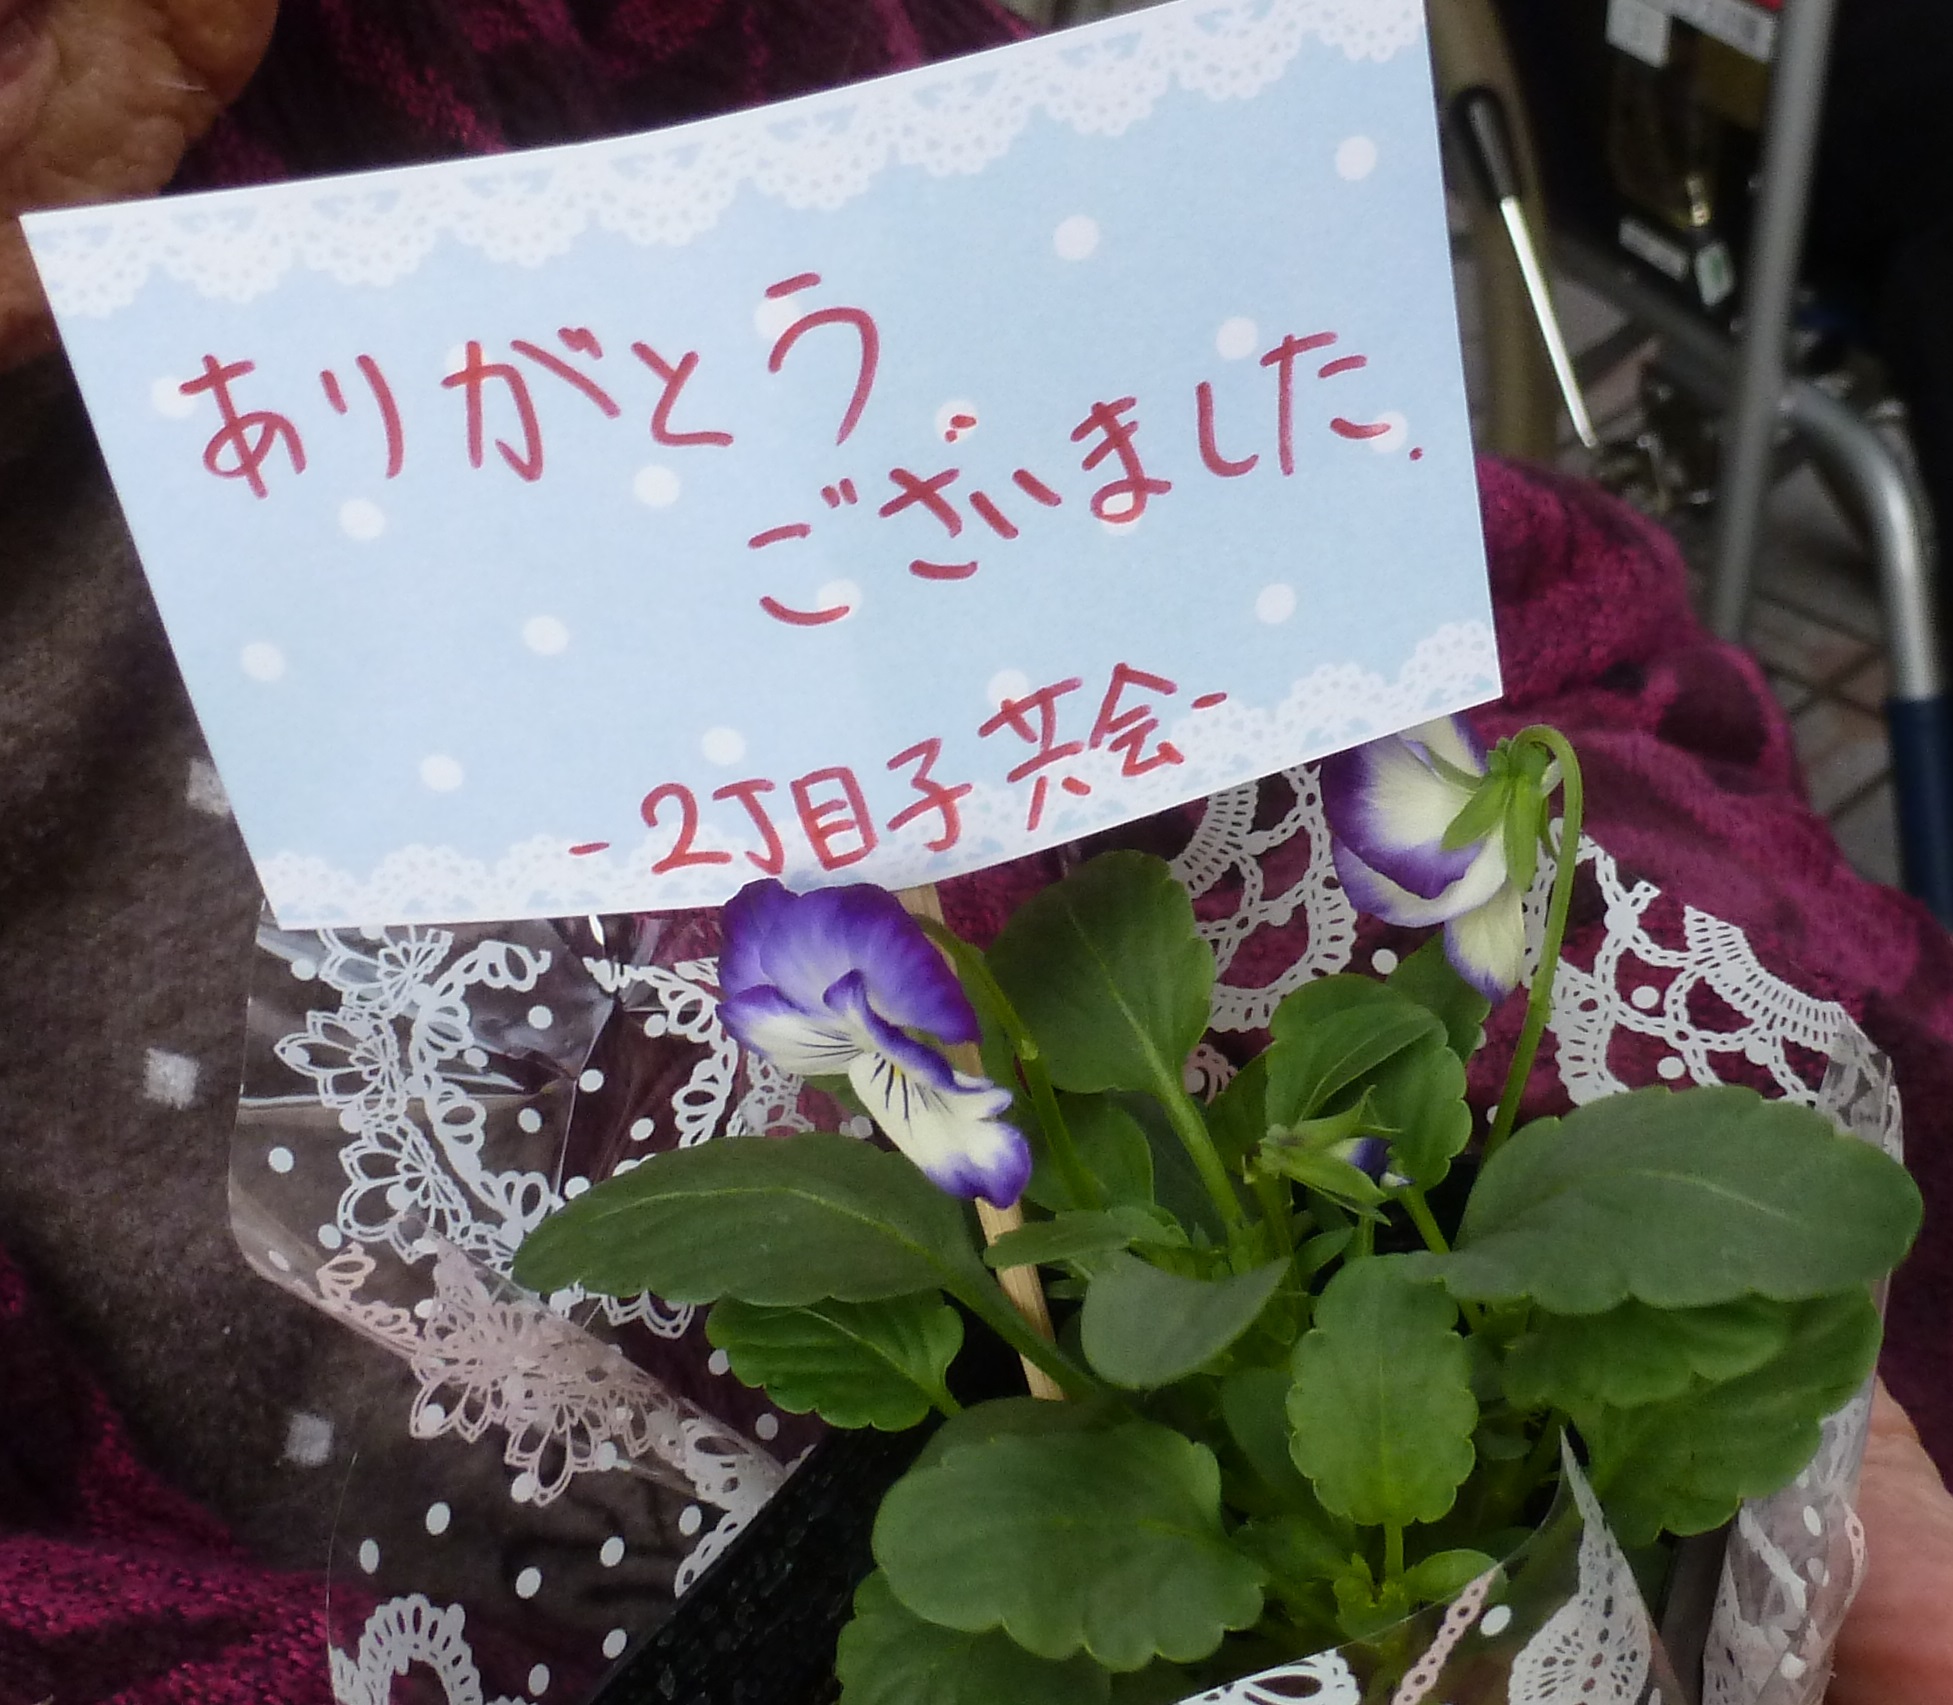 ありがとう
ございました.
-2丁目子共会-